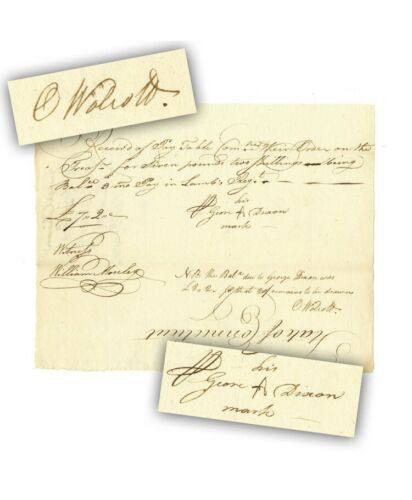 O Wolcott.
Receiv'd of Pay Table Comtee Their Order on the
Treasr for Seven pounds two shillings being
Balce & mo Pay in Lambs Regt
£7..2..
his
Geore Dixon
mark
Witness
William Moseley
NB the Balce due to George Dixon was
£9..2. so that remains to be drawn
O Wolcott.
State of Connecticut
his
Geore Dixon
mark